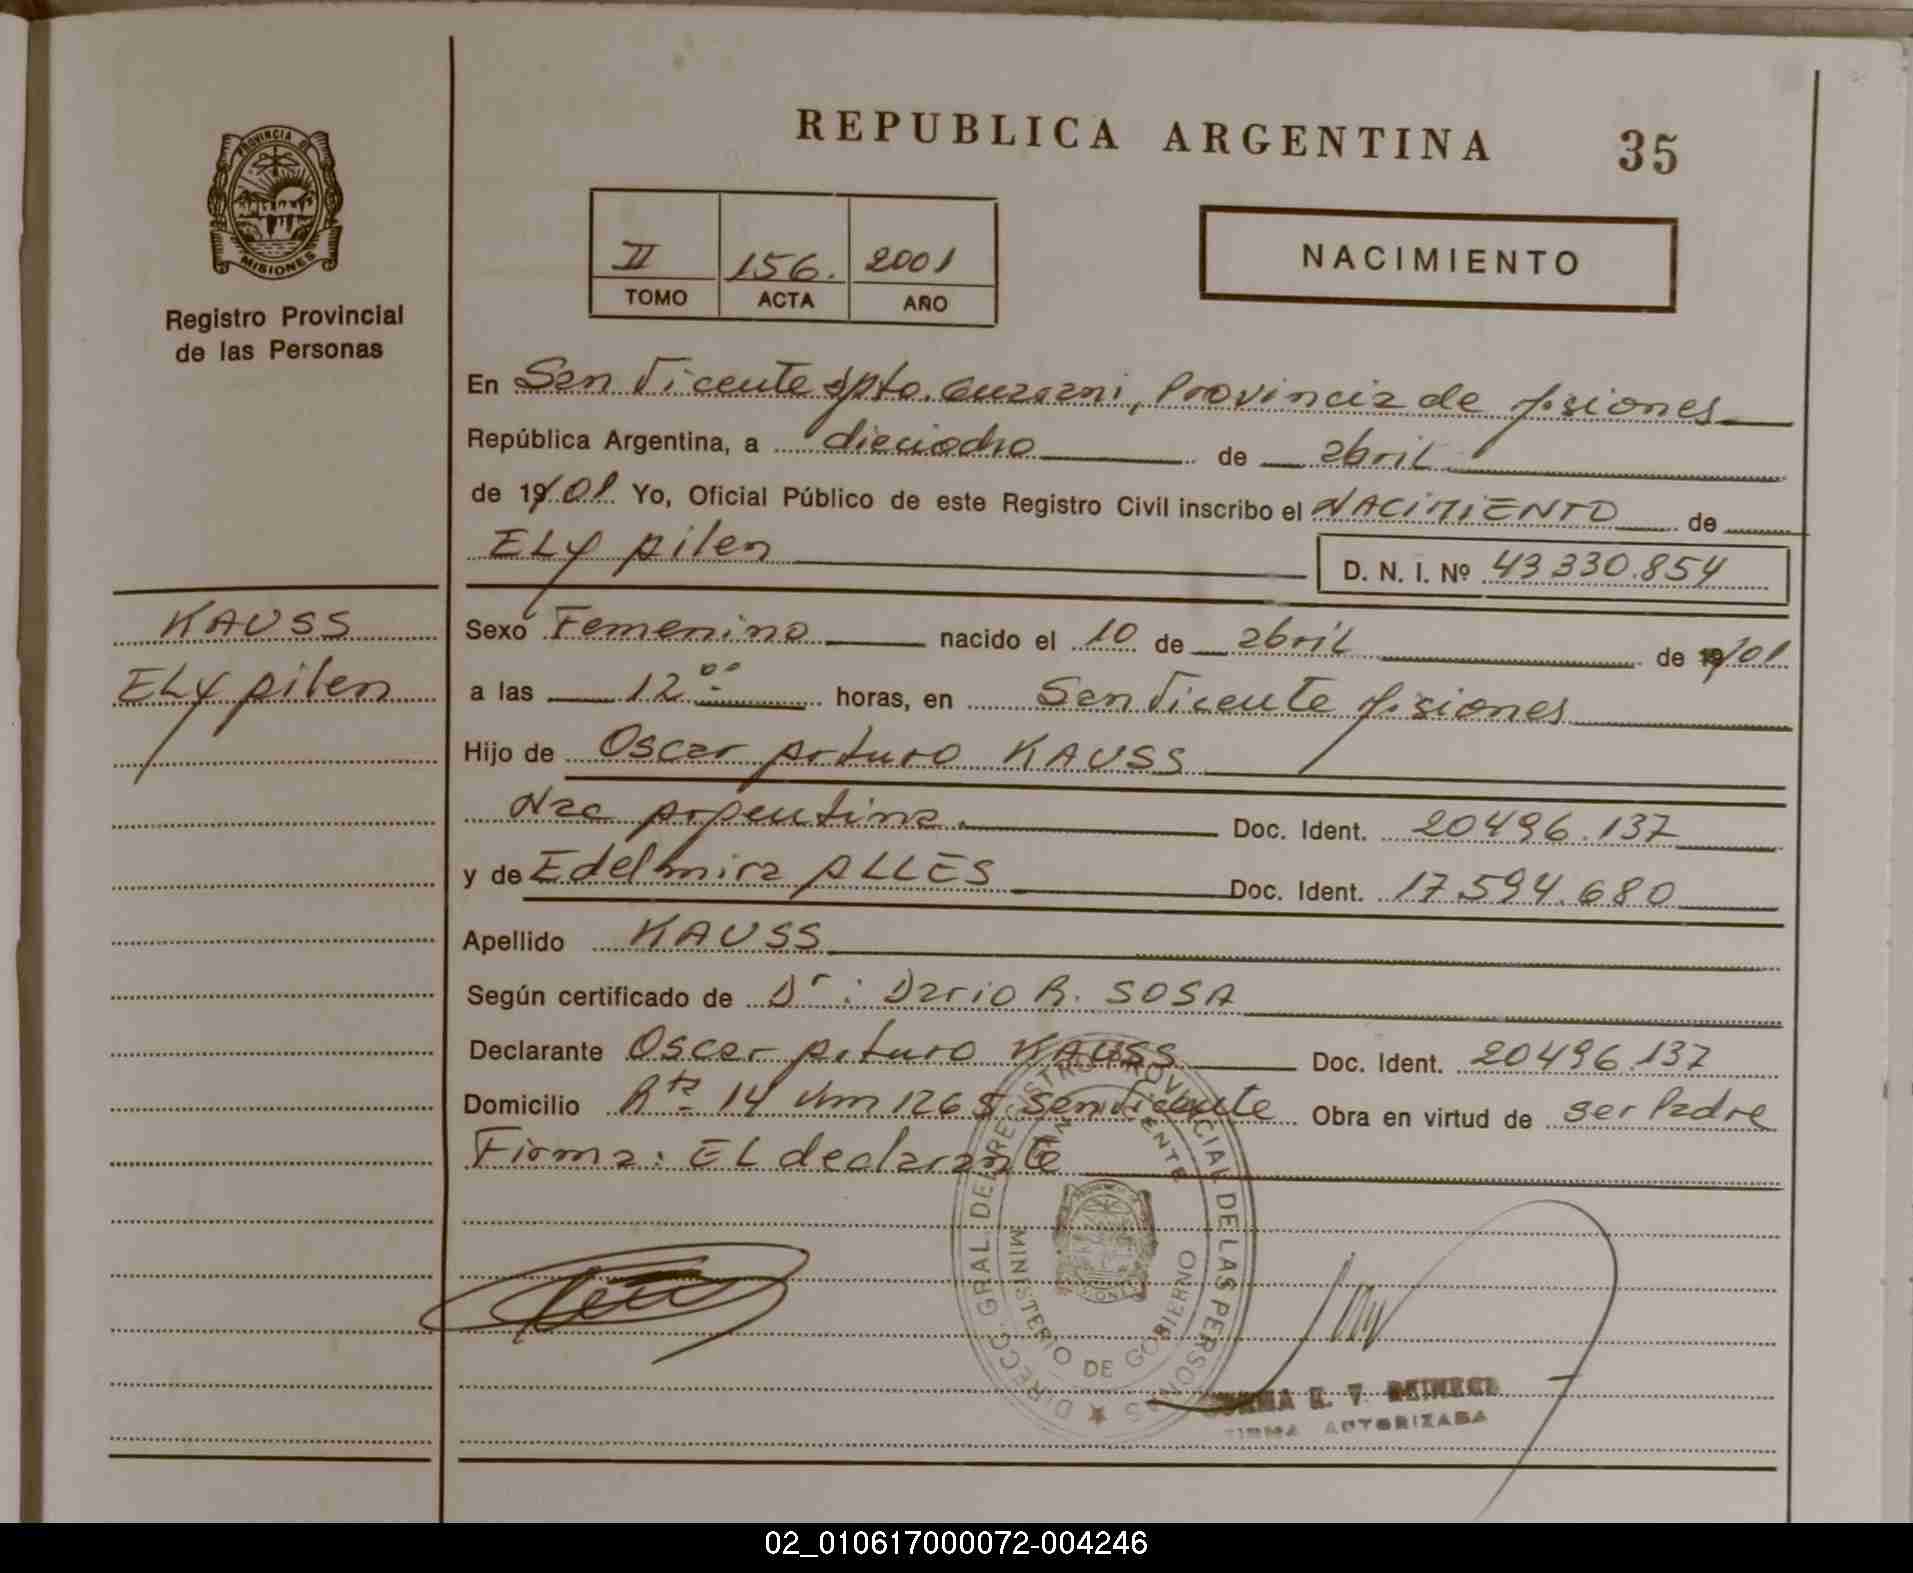 REPUBLICA ARGENTINA 35
PROVINCIA DE
MISIONES
Registro Provincial
de las Personas
II 156. 2001
TOMO ACTA AÑO
NACIMIENTO
En San Vicente Dpto. Guarani, Provincia de Misiones
República Argentina, a dieciocho de abril
de 19/01 Yo, Oficial Público de este Registro Civil inscribo el NACIMIENTO de
ELY Ailen D. N. I. Nº 43330.854
KAUSS
ELY Ailen
Sexo Femenino nacido el 10 de abril de 19/01
a las 12 00 horas, en San Vicente Misiones
Hijo de Oscar Arturo KAUSS
Nac Argentina. Doc. Ident. 20496.137
y de Edelmira ALLES Doc. Ident. 17.594.680
Apellido KAUSS
Según certificado de Dr: Dario R. SOSA
Declarante Oscar Arturo KAUSS Doc. Ident. 20496.137
Domicilio Rta 14 Km 1265 San Vicente Obra en virtud de ser Padre
Firma: EL declarante
DIRECC. GRAL. DEL REGISTRO PROVINCIAL DE LAS PERSONAS
MINISTERIO DE GOBIERNO
MISIONES
FIRMA AUTORIZADA
02_010617000072-004246